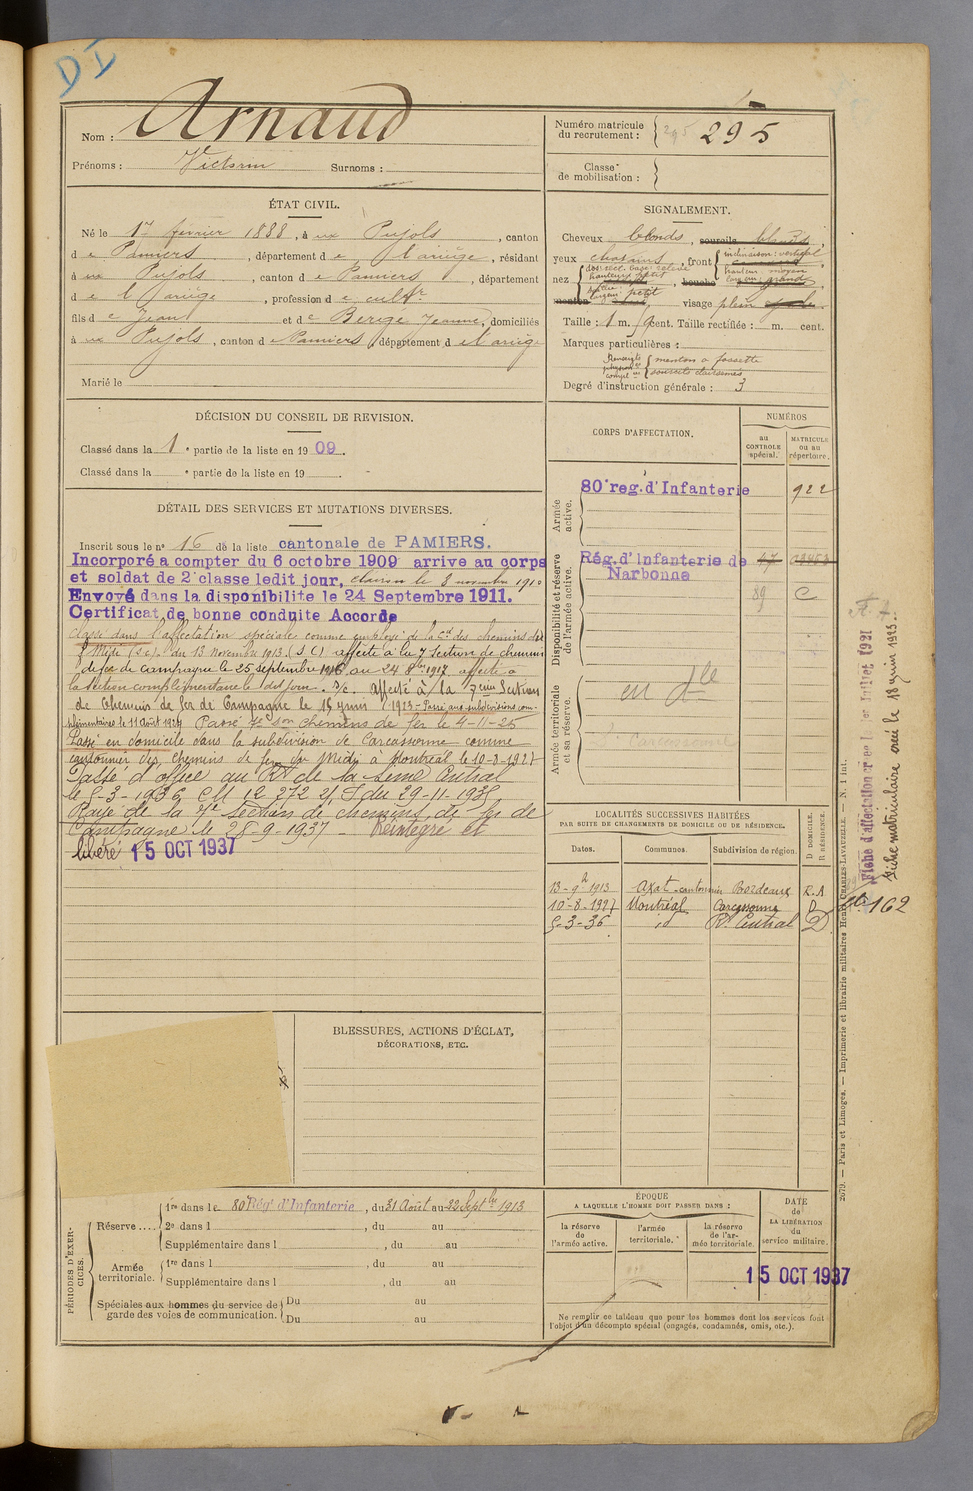 DI
Nom : Arnaud
Prénoms : Victorin Surnoms :
Numéro matricule du recrutement : 295 295
Classe de mobilisation :
ÉTAT CIVIL.
Né le 17 février 1888, à ux Pujols, canton
de Pamiers, département de l'ariège, résidant
à ux Pujols, canton de Pamiers, département
de l'ariège, profession de cultr
fils de Jean et de Berigé Jeanne, domiciliés
à ux Pujols, canton de Pamiers département de l'ariège
Marié le
SIGNALEMENT.
Cheveux blonds, sourcils blonds,
yeux chatains, front inclinaison : vertical
hauteur : moyen
largeur : grand
nez dos : rect. base : relevé
hauteur : petit
largeur : petit
bouche
menton visage plein
Taille : 1 m. cent. Taille rectifiée : m. cent.
Marques particulières :
menton à fossette
sourcils clairsemés
Degré d'instruction générale : 3
DÉCISION DU CONSEIL DE REVISION.
Classé dans la 1e partie de la liste en 1909.
Classé dans la e partie de la liste en 19 .
CORPS D'AFFECTATION.
NUMÉROS
au CONTROLE spécial.
MATRICULE ou au répertoire.
Armée active.
80e reg. d'Infanterie 922
Disponibilité et réserve de l'armée active.
Rég. d'Infanterie de Narbonne 47
89 C
Armée territoriale et sa réserve.
en Dle
DÉTAIL DES SERVICES ET MUTATIONS DIVERSES.
Inscrit sous le no 16 de la liste cantonale de PAMIERS.
Incorporé a compter du 6 octobre 1909 arrive au corps
et soldat de 2e classe ledit jour, clairon le 8 novembre 1910
Envoyé dans la disponibilite le 24 Septembre 1911.
Certificat de bonne conduite Accordé
Classé dans l'affectation spéciale comme employé de la Cie des chemins de
f Midi (S.C). du 13 Novembre 1913. (S C) affecté à la 7 section de chemins
de fer de campagne le 25 septembre 1916 au 24 8bre 1917. affecté à
la section complémentaire le dit jour. S/C. Affecté à la 7eme Section
de Chemins de fer de Campagne le 15 juin 1923 - Passé aux subdivisions com-
plémentaires le 11 Août 1924 Passé 7e son chemins de fer le 4-11-25
Passé en domicile dans la subdivision de Carcassonne comme
cantonnier des chemins de fer du Midi à Montréal le 10-8-1927
Passé d'office au Rt de la Seine Central
le 5-3-1936 CM 12 372 2/ du 29-11-1935
Rayé de la 7e section de chemins de fer de
Campagne le 28-9-1937 - Réintégré et
libéré 15 OCT 1937
LOCALITÉS SUCCESSIVES HABITÉES
PAR SUITE DE CHANGEMENTS DE DOMICILE OU DE RÉSIDENCE.
Dates. Communes. Subdivision de région. D DOMICILE. R RÉSIDENCE.
13-9-1913 Axat - cantonnier Bordeaux R.A
10-8-1927 Montréal Carcassonne D
5-3-36 id Rt Central D
BLESSURES, ACTIONS D'ÉCLAT,
DÉCORATIONS, ETC.
PÉRIODES D'EXERCICES.
Réserve .... 1re dans le 80e Régt d'Infanterie, du 31 Août au 22 Septbre 1913
2e dans l , du au
Supplémentaire dans l , du au
Armée territoriale. 1re dans l , du au
Supplémentaire dans l , du au
Spéciales aux hommes du service de garde des voies de communication. Du au
Du au
ÉPOQUE
A LAQUELLE L'HOMME DOIT PASSER DANS :
la réserve de l'armée active.
l'armée territoriale.
la réserve de l'armée territoriale.
DATE de LA LIBÉRATION du service militaire.
15 OCT 1937
Ne remplir ce tableau que pour les hommes dont les services font
l'objet d'un décompte spécial (engagés, condamnés, omis, etc.).
2679. — Paris et Limoges. — Imprimerie et librairie militaires Henri CHARLES-LAVAUZELLE. — N. 1 int.
Fiche d'affectation créée le 1er Juillet 1921
Fiche matriculaire créée le 18 juin 1923.
162